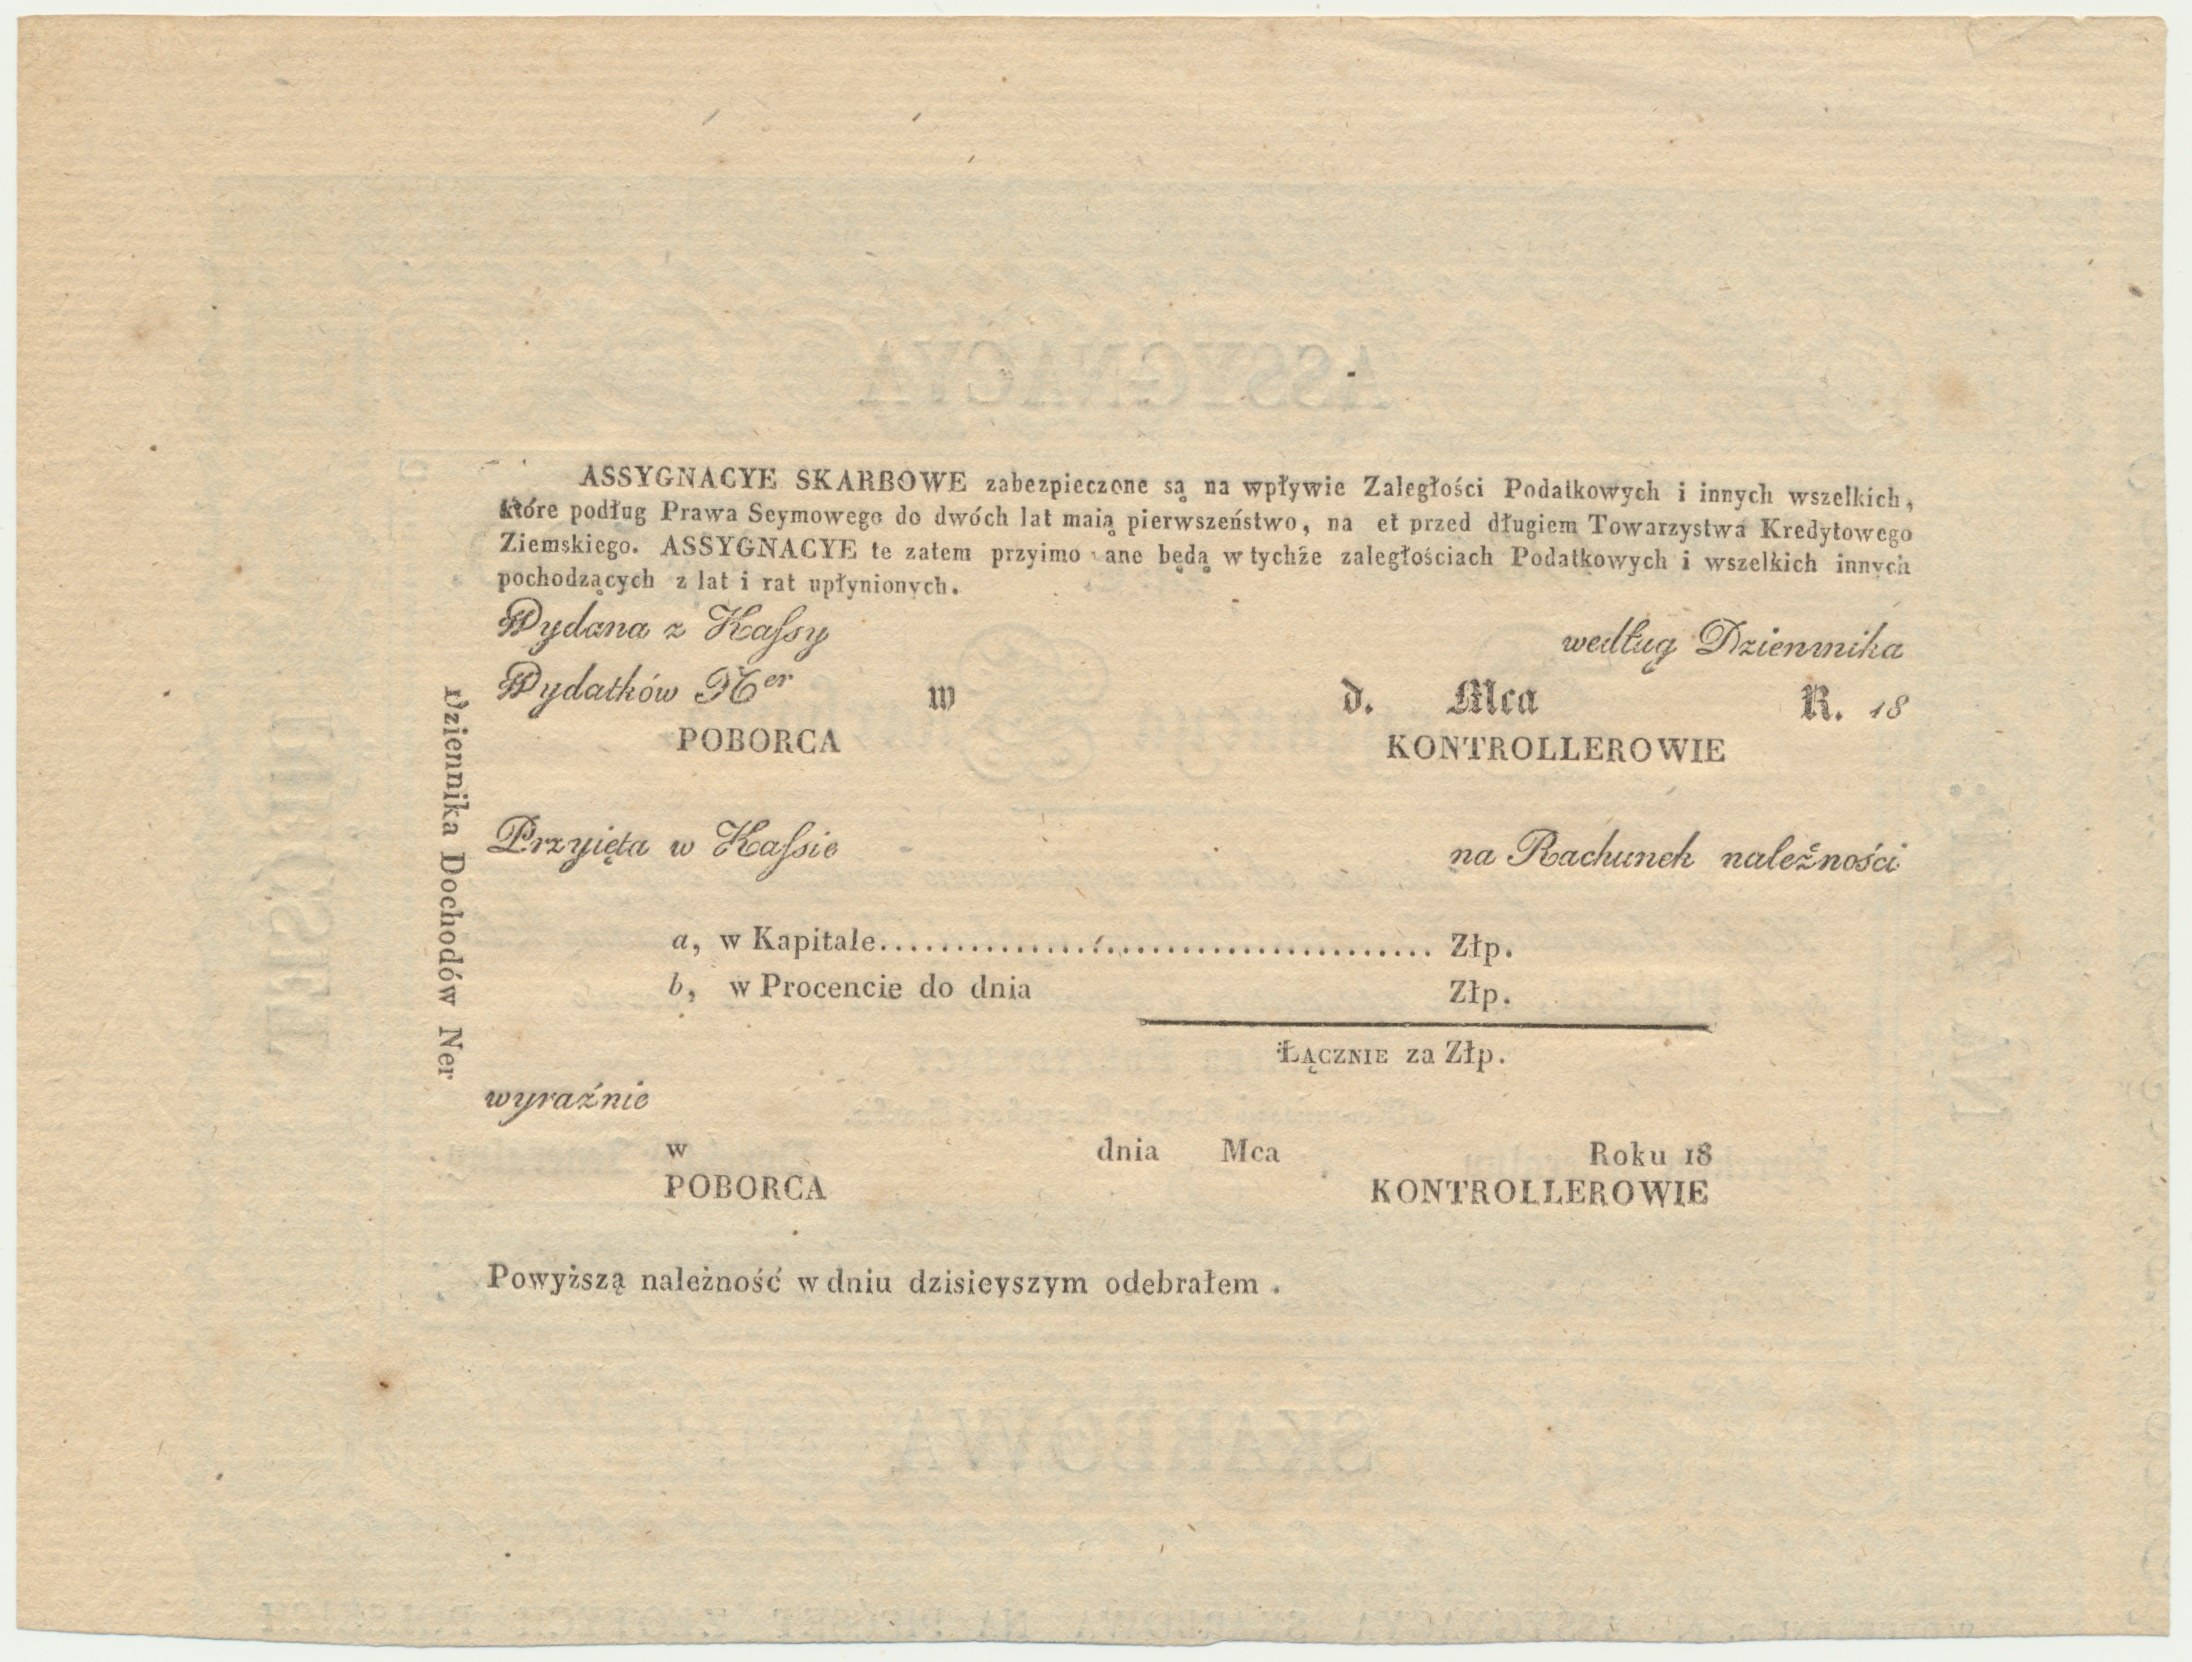 ASSYGNACYA
ASSYGNACYE SKARBOWE zabezpieczone są na wpływie Zaległości Podatkowych i innych wszelkich,
które podług Prawa Seymowego do dwóch lat maią pierwszeństwo, na et przed długiem Towarzystwa Kredytowego
Ziemskiego. ASSYGNACYE te zatem przyimo ane będą w tychże zaległościach Podatkowych i wszelkich innych
pochodzących z lat i rat upłynionych.
Wydana z Kaſsy według Dziennika
Wydatków Ner w d. Mca R. 18
POBORCA KONTROLLEROWIE
Dziennika Dochodów Ner
Przyięta w Kaſsie na Rachunek należności
a, w Kapitale........................................ Złp.
b, w Procencie do dnia Złp.
ŁĄCZNIE za Złp.
wyraźnie
w dnia Mca Roku 18
POBORCA KONTROLLEROWIE
Powyższą należność w dniu dzisieyszym odebrałem .
SKARBOWA
ASSYGNACYA SKARBOWA NA DWIEŚCIE ZŁOTYCH POLSKICH